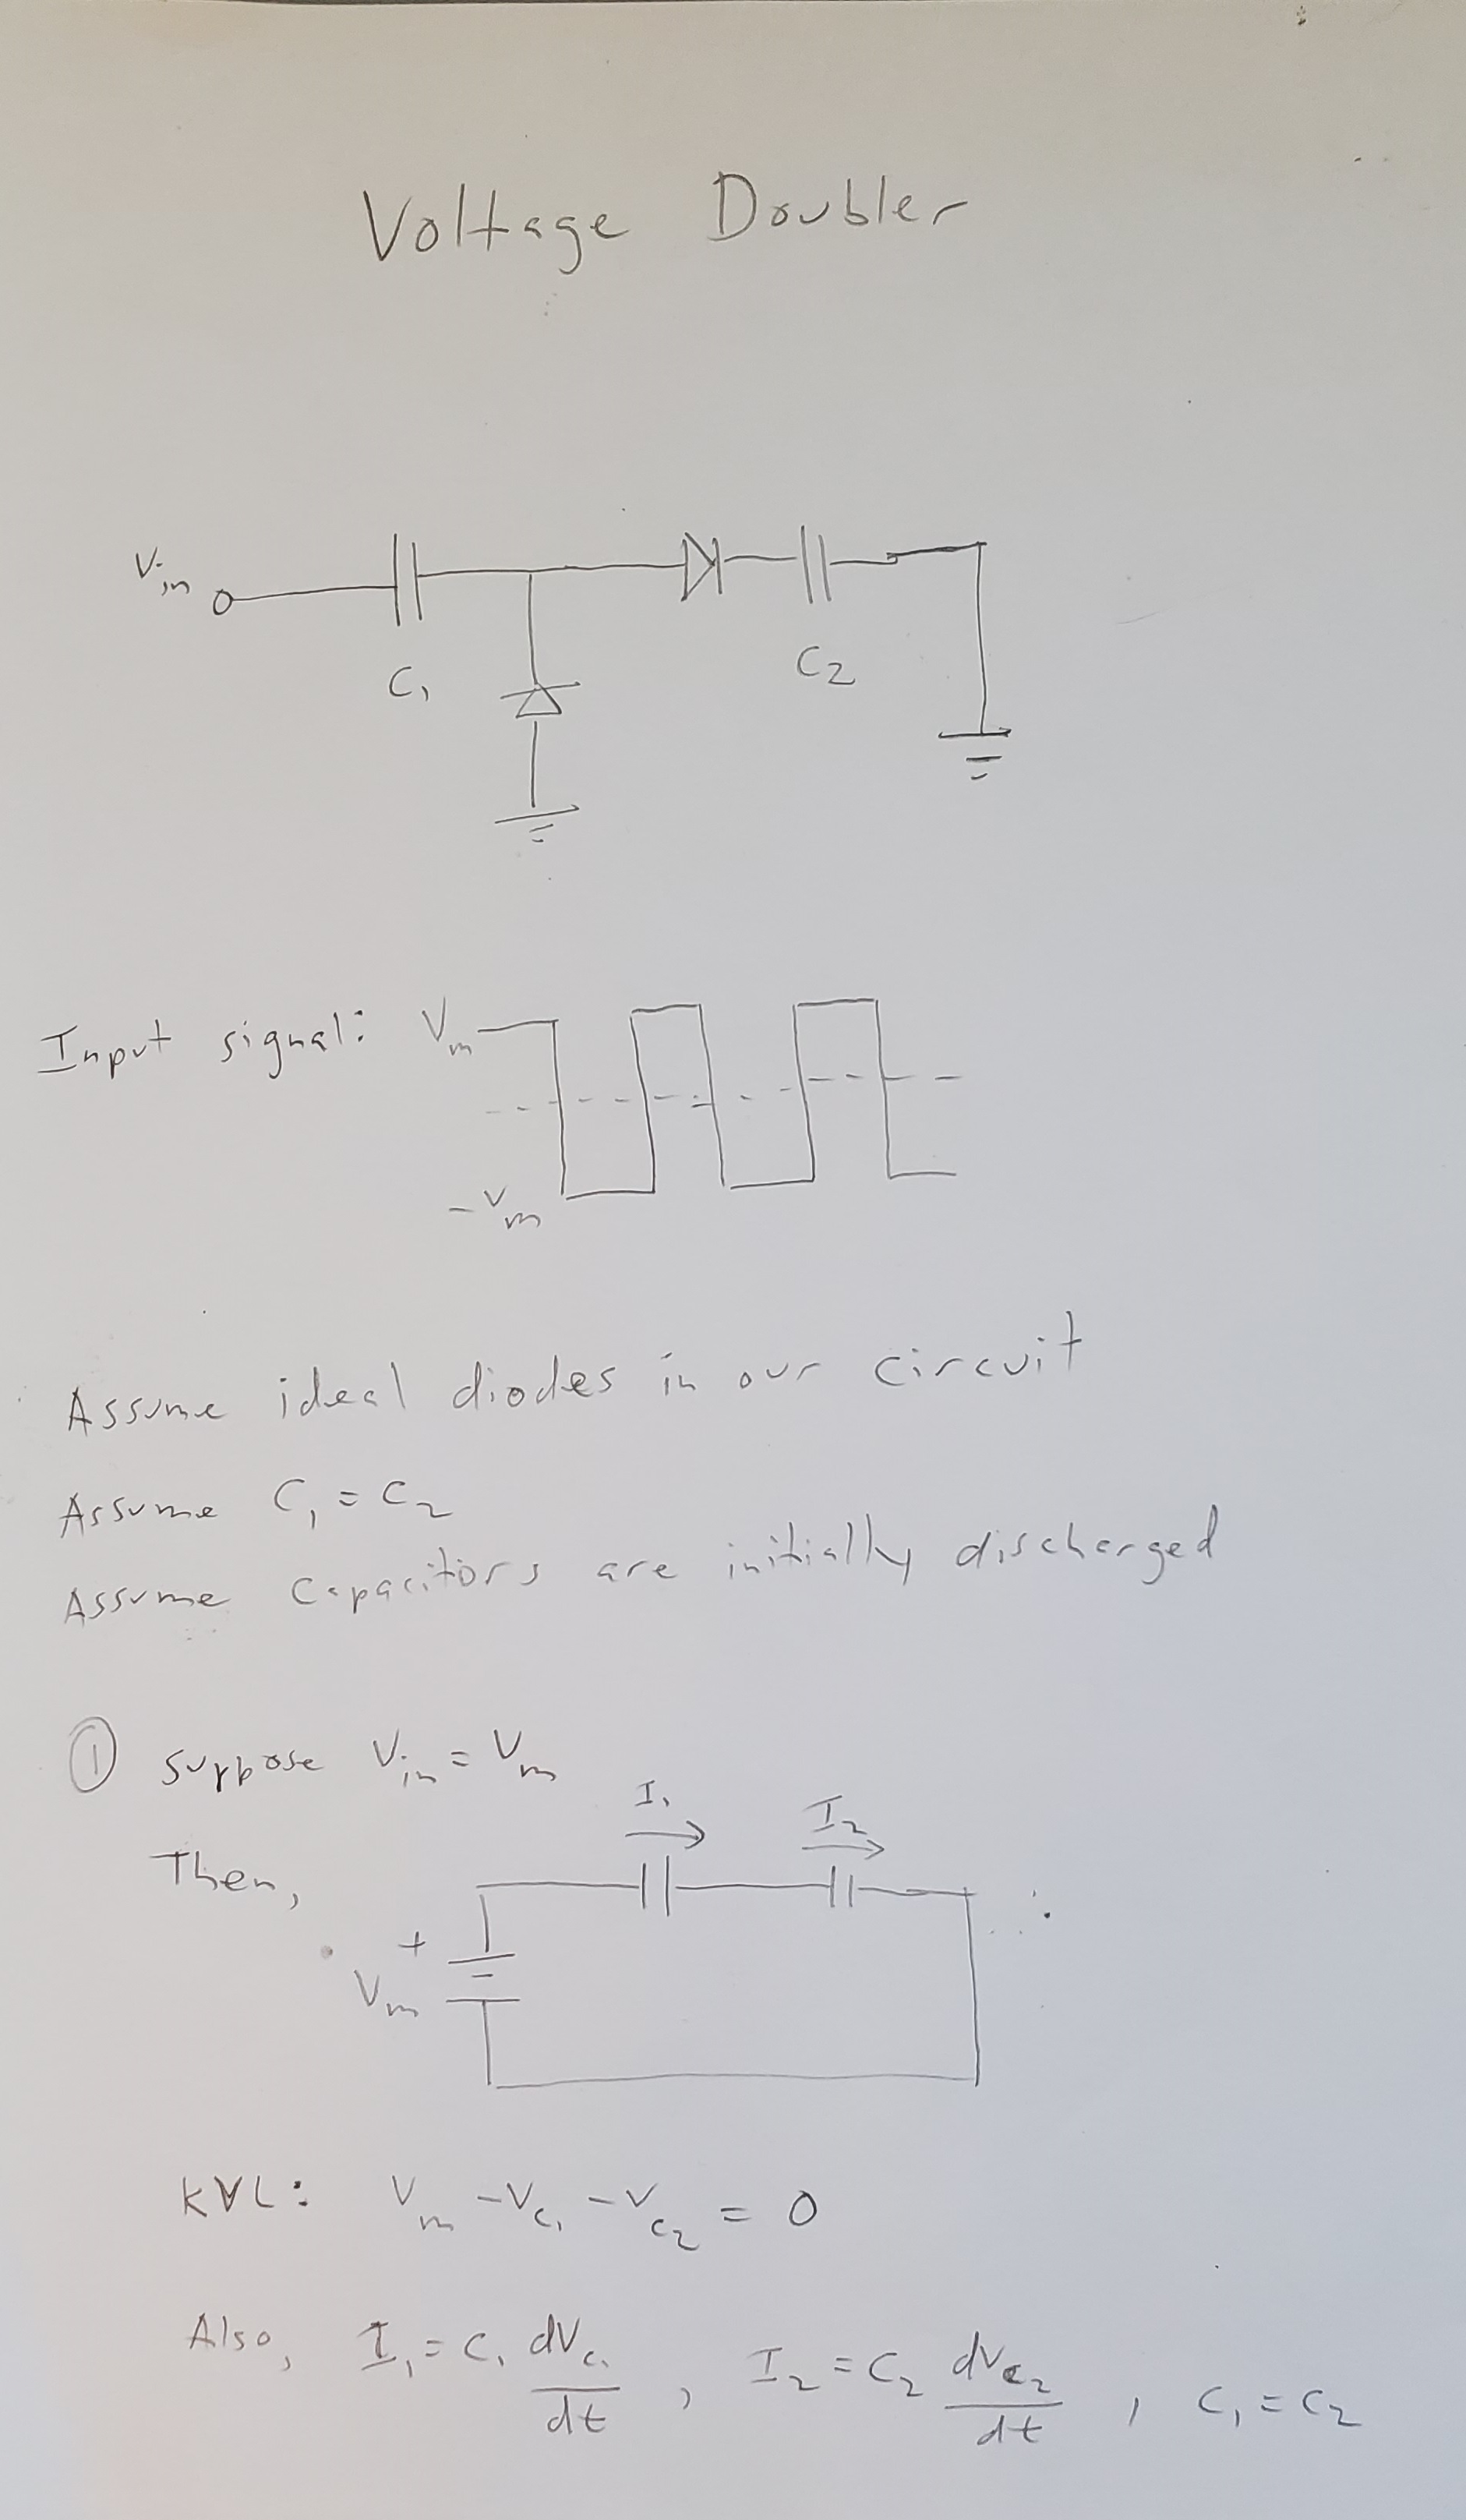 Voltage Doubler
Vin
C1
C2
Input signal: Vm
-Vm
Assume ideal diodes in our circuit
Assume C1 = C2
Assume capacitors are initially discharged
① Suppose Vin = Vm
I1
I2
Then,
+
Vm
KVL: Vm - Vc1 - Vc2 = 0
Also, I1 = C1 dVc1/dt , I2 = C2 dVc2/dt , C1 = C2